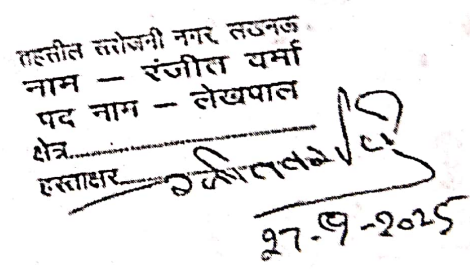 तहसील सरोजनी नगर लखनऊ
नाम – रंजीत वर्मा
पद नाम – लेखपाल
क्षेत्र..............................
हस्ताक्षर
27-9-2025